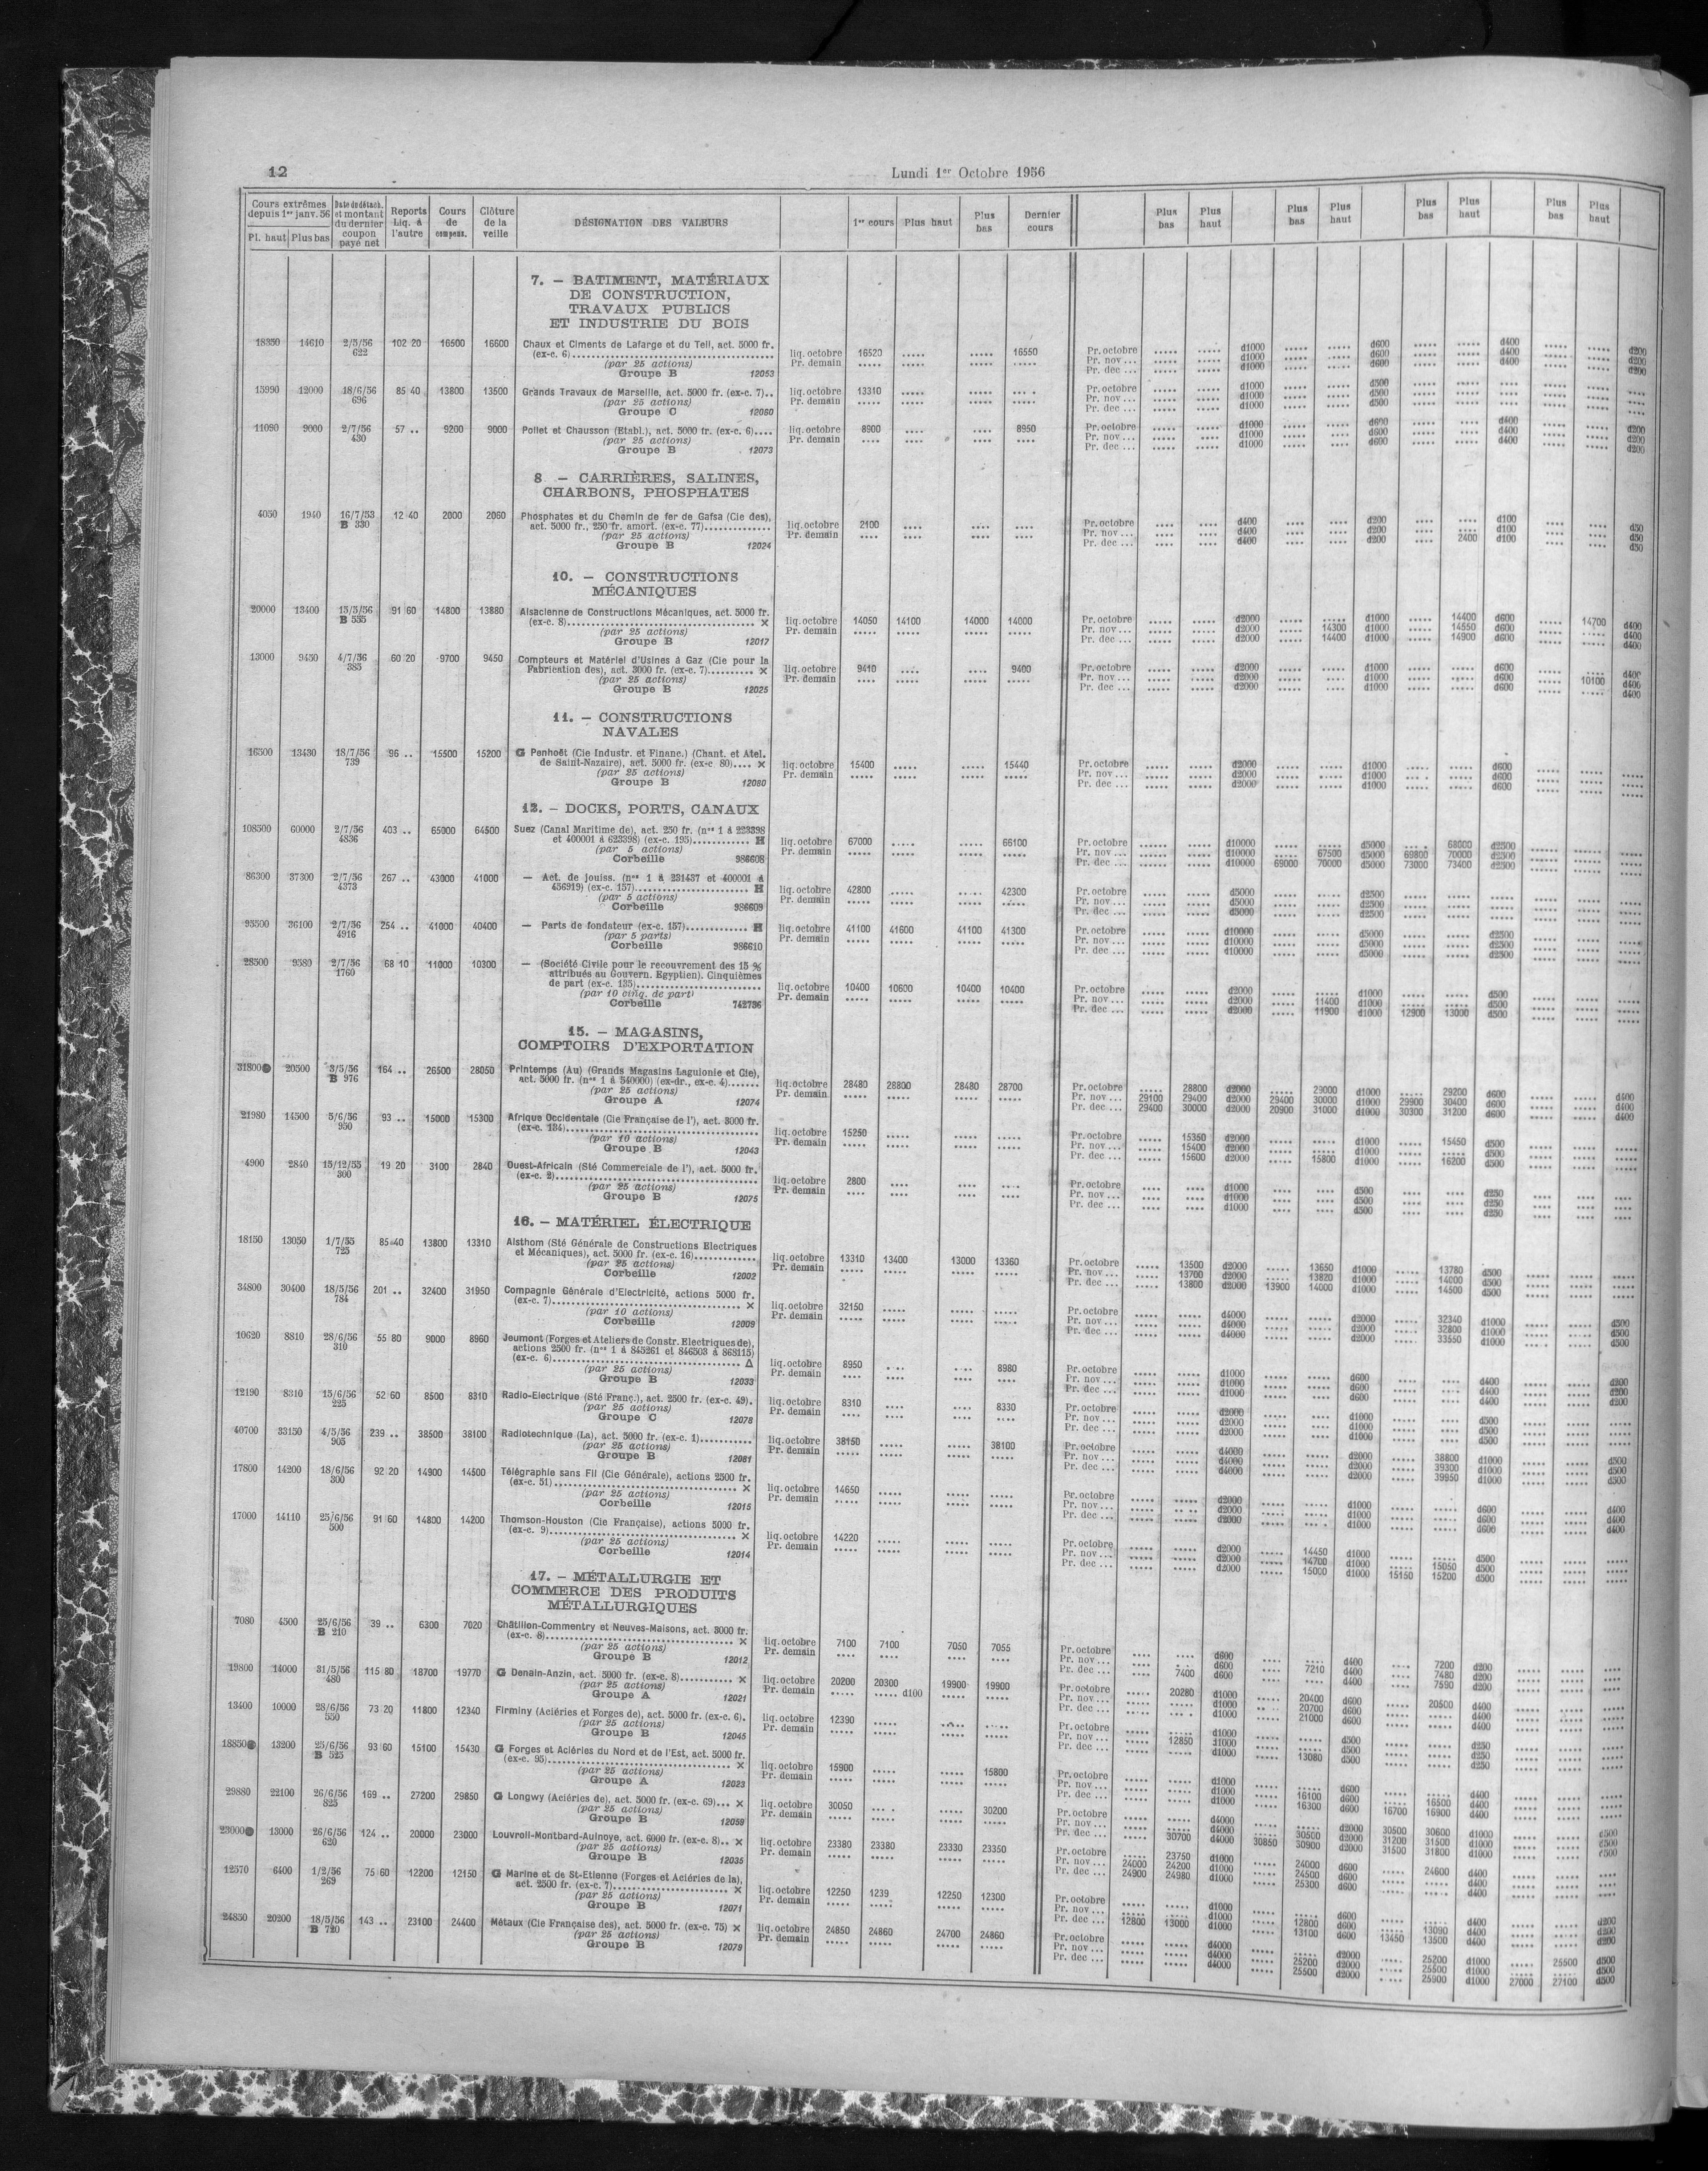 12
Lundi 1er Octobre 1956
Cours extrêmes depuis 1er janv. 56 Date de détach. et montant du dernier coupon payé net Reports Liq. à l'autre Cours de compens. Clôture de la veille DÉSIGNATION DES VALEURS 1er cours Plus haut Plus bas Dernier cours Plus bas Plus haut Plus bas Plus haut Plus bas Plus haut Plus bas Plus haut
Pl. haut Plus bas
7. — BATIMENT, MATÉRIAUX
DE CONSTRUCTION,
TRAVAUX PUBLICS
ET INDUSTRIE DU BOIS
18350 14610 2/5/56 622 102 20 16500 16600 Chaux et Ciments de Lafarge et du Teil, act. 5000 fr.
(ex-c. 6) liq. octobre 16520 ..... ..... 16550 Pr. octobre d1000 d600 d400 d200
(par 25 actions) Pr. demain Pr. nov ... d1000 d600 d400 d200
Groupe B 12053 Pr. dec ... d1000 d600 d400 d200
15990 12000 18/6/56 696 85 40 13800 13500 Grands Travaux de Marseille, act. 5000 fr. (ex-c. 7).. liq. octobre 13310 Pr. octobre d1000 d500
(par 25 actions) Pr. demain Pr. nov ... d1000 d500
Groupe C 12060 Pr. dec ... d1000 d500
11090 9000 2/7/56 430 57 .. 9200 9000 Poliet et Chausson (Etabl.), act. 5000 fr. (ex-c. 6).... liq. octobre 8900 8950 Pr. octobre d1000 d600 d400 d200
(par 25 actions) Pr. demain Pr. nov ... d1000 d600 d400 d200
Groupe B 12073 Pr. dec ... d1000 d600 d400 d200
8 — CARRIÈRES, SALINES,
CHARBONS, PHOSPHATES
4050 1940 16/7/53 B 330 12 40 2000 2060 Phosphates et du Chemin de fer de Gafsa (Cie des),
act. 5000 fr., 250 fr. amort. (ex-c. 77) liq. octobre 2100 Pr. octobre d400 d200 d100 d50
(par 25 actions) Pr. demain Pr. nov ... d400 d200 d100 d50
Groupe B 12024 Pr. dec ... d400 d200 2400 d100 d50
10. — CONSTRUCTIONS
MÉCANIQUES
20000 13400 15/5/56 B 535 91 60 14800 13880 Alsacienne de Constructions Mécaniques, act. 5000 fr.
(ex-c. 8) × liq. octobre 14050 14100 14000 14000 Pr. octobre d2000 d1000 14400 d600 14700 d400
(par 25 actions) Pr. demain Pr. nov ... d2000 14300 d1000 14550 d600 d400
Groupe B 12017 Pr. dec ... d2000 14400 d1000 14900 d600 d400
13000 9450 4/7/56 385 60 20 9700 9450 Compteurs et Matériel d'Usines à Gaz (Cie pour la
Fabrication des), act. 3000 fr. (ex-c. 7) × liq. octobre 9410 9400 Pr. octobre d2000 d1000 d600 d400
(par 25 actions) Pr. demain Pr. nov ... d2000 d1000 d600 10100 d400
Groupe B 12025 Pr. dec ... d2000 d1000 d600 d400
11. — CONSTRUCTIONS
NAVALES
16500 13430 18/7/56 739 96 .. 15500 15200 G Penhoët (Cie Industr. et Financ.) (Chant. et Atel.
de Saint-Nazaire), act. 5000 fr. (ex-c 80).... × liq. octobre 15400 15440 Pr. octobre d2000 d1000 d600
(par 25 actions) Pr. demain Pr. nov ... d2000 d1000 d600
Groupe B 12080 Pr. dec ... d2000 d1000 d600
13. — DOCKS, PORTS, CANAUX
108500 60000 2/7/56 4836 403 .. 65000 64500 Suez (Canal Maritime de), act. 250 fr. (nos 1 à 223398
et 400001 à 623398) (ex-c. 195) H liq. octobre 67000 66100 Pr. octobre d10000 d5000 68000 d2500
(par 5 actions) Pr. demain Pr. nov ... d10000 67500 d5000 69800 70000 d2500
Corbeille 986608 Pr. dec ... d10000 69000 70000 d5000 73000 73400 d2500
86300 37300 2/7/56 4373 267 .. 43000 41000 — Act. de jouiss. (nos 1 à 231437 et 400001 à
436919) (ex-c. 157) H liq. octobre 42800 42300 Pr. octobre d5000 d2500
(par 5 actions) Pr. demain Pr. nov ... d5000 d2500
Corbeille 986609 Pr. dec ... d5000 d2500
95500 36100 2/7/56 4916 254 .. 41000 40400 — Parts de fondateur (ex-c. 157) H liq. octobre 41100 41600 41100 41300 Pr. octobre d10000 d5000 d2500
(par 5 parts) Pr. demain Pr. nov ... d10000 d5000 d2500
Corbeille 986610 Pr. dec ... d10000 d5000 d2500
28500 9580 2/7/56 1760 68 10 11000 10300 — (Société Civile pour le recouvrement des 15 %
attribués au Gouvern. Egyptien). Cinquièmes
de part (ex-c. 135) liq. octobre 10400 10600 10400 10400 Pr. octobre d2000 d1000 d500
(par 10 cinq. de part) Pr. demain Pr. nov ... d2000 11400 d1000 d500
Corbeille 742786 Pr. dec ... d2000 11900 d1000 12900 13000 d500
15. — MAGASINS,
COMPTOIRS D'EXPORTATION
31800 20500 3/5/56 B 976 164 .. 26500 28050 Printemps (Au) (Grands Magasins Laguionie et Cie),
act. 5000 fr. (nos 1 à 540000) (ex-dr., ex-c. 4) liq. octobre 28480 28800 28480 28700 Pr. octobre 28800 d2000 29000 d1000 29200 d600 d400
(par 25 actions) Pr. demain Pr. nov ... 29100 29400 d2000 29400 30000 d1000 29900 30400 d600 d400
Groupe A 12074 Pr. dec ... 29400 30000 d2000 20900 31000 d1000 30300 31200 d600 d400
21980 14500 5/6/56 950 93 .. 15000 15300 Afrique Occidentale (Cie Française de l'), act. 3000 fr.
(ex-c. 134) liq. octobre 15250 Pr. octobre 15350 d2000 d1000 15450 d500
(par 10 actions) Pr. demain Pr. nov ... 15400 d2000 d1000 d500
Groupe B 12043 Pr. dec ... 15600 d2000 15800 d1000 16200 d500
4900 2840 15/12/55 300 19 20 3100 2840 Ouest-Africain (Sté Commerciale de l'), act. 5000 fr.
(ex-c. 2) liq. octobre 2800 Pr. octobre d1000 d500 d250
(par 25 actions) Pr. demain Pr. nov ... d1000 d500 d250
Groupe B 12075 Pr. dec ... d1000 d500 d250
16. — MATÉRIEL ÉLECTRIQUE
18150 13050 1/7/55 725 85 40 13800 13310 Alsthom (Sté Générale de Constructions Electriques
et Mécaniques), act. 5000 fr. (ex-c. 16) liq. octobre 13310 13400 13000 13360 Pr. octobre 13500 d2000 13650 d1000 13780 d500
(par 25 actions) Pr. demain Pr. nov ... 13700 d2000 13820 d1000 14000 d500
Corbeille 12002 Pr. dec ... 13800 d2000 13900 14000 d1000 14500 d500
34800 30400 18/5/56 784 201 .. 32400 31950 Compagnie Générale d'Electricité, actions 5000 fr.
(ex-c. 7) × liq. octobre 32150 Pr. octobre d4000 d2000 32340 d1000 d500
(par 10 actions) Pr. demain Pr. nov ... d4000 d2000 32800 d1000 d500
Corbeille 12009 Pr. dec ... d4000 d2000 33550 d1000 d500
10620 8810 28/6/56 310 55 80 9000 8960 Jeumont (Forges et Ateliers de Constr. Electriques de),
actions 2500 fr. (nos 1 à 845261 et 846503 à 868115)
(ex-c. 6) Δ liq. octobre 8950 8980 Pr. octobre d1000 d600 d400 d200
(par 25 actions) Pr. demain Pr. nov ... d1000 d600 d400 d200
Groupe B 12033 Pr. dec ... d1000 d600 d400 d200
12190 8310 15/6/56 225 52 60 8500 8310 Radio-Electrique (Sté Franç.), act. 2500 fr. (ex-c. 49). liq. octobre 8310 8330 Pr. octobre d2000 d1000 d500
(par 25 actions) Pr. demain Pr. nov ... d2000 d1000 d500
Groupe C 12078 Pr. dec ... d2000 d1000 d500
40700 33150 4/5/56 905 239 .. 38500 38100 Radiotechnique (La), act. 5000 fr. (ex-c. 1) liq. octobre 38150 38100 Pr. octobre d4000 d2000 38800 d1000 d500
(par 25 actions) Pr. demain Pr. nov ... d4000 d2000 39300 d1000 d500
Groupe B 12081 Pr. dec ... d4000 d2000 39950 d1000 d500
17800 14200 18/6/56 300 92 20 14900 14500 Télégraphie sans Fil (Cie Générale), actions 2500 fr.
(ex-c. 51) × liq. octobre 14650 Pr. octobre d2000 d1000 d600 d400
(par 25 actions) Pr. demain Pr. nov ... d2000 d1000 d600 d400
Corbeille 12015 Pr. dec ... d2000 d1000 d600 d400
17000 14110 25/6/56 500 91 60 14800 14200 Thomson-Houston (Cie Française), actions 5000 fr.
(ex-c. 9) × liq. octobre 14220 Pr. octobre d2000 14450 d1000 d500
(par 25 actions) Pr. demain Pr. nov ... d2000 14700 d1000 15050 d500
Corbeille 12014 Pr. dec ... d2000 15000 d1000 15150 15200 d500
17. — MÉTALLURGIE ET
COMMERCE DES PRODUITS
MÉTALLURGIQUES
7080 4500 25/6/56 B 210 39 .. 6300 7020 Châtillon-Commentry et Neuves-Maisons, act. 3000 fr.
(ex-c. 8) × liq. octobre 7100 7100 7050 7055 Pr. octobre d600 d400 7200 d200
(par 25 actions) Pr. demain Pr. nov ... d600 7210 d400 7480 d200
Groupe B 12012 Pr. dec ... 7400 d600 d400 7590 d200
19800 14000 31/5/56 480 115 80 18700 19770 G Denain-Anzin, act. 5000 fr. (ex-c. 8) × liq. octobre 20200 20300 19900 19900 Pr. octobre 20280 d1000 20400 d600 20500 d400
(par 25 actions) Pr. demain d100 Pr. nov ... d1000 20700 d600 d400
Groupe A 12021 Pr. dec ... d1000 21000 d600 d400
13400 10000 28/6/56 550 73 20 11800 12340 Firminy (Aciéries et Forges de), act. 5000 fr. (ex-c. 6). liq. octobre 12390 Pr. octobre d1000 d500 d250
(par 25 actions) Pr. demain Pr. nov ... 12850 d1000 d500 d250
Groupe B 12045 Pr. dec ... d1000 13080 d500 d250
18850 13200 25/6/56 B 525 93 60 15100 15430 G Forges et Aciéries du Nord et de l'Est, act. 5000 fr.
(ex-c. 95) × liq. octobre 15900 15800 Pr. octobre d1000 d600 d400
(par 25 actions) Pr. demain Pr. nov ... d1000 16100 d600 16500 d400
Groupe A 12023 Pr. dec ... d1000 16300 d600 16700 16900 d400
29880 22100 26/6/56 825 169 .. 27200 29850 G Longwy (Aciéries de), act. 5000 fr. (ex-c. 69)... × liq. octobre 30050 30200 Pr. octobre d4000 d2000 30500 30600 d1000 d500
(par 25 actions) Pr. demain Pr. nov ... d4000 30500 d2000 31200 31500 d1000 d500
Groupe B 12059 Pr. dec ... 30700 d4000 30850 30900 d2000 31500 31800 d1000 d500
23000 13000 26/6/56 620 124 .. 20000 23000 Louvroil-Montbard-Aulnoye, act. 6000 fr. (ex-c. 8).. × liq. octobre 23380 23380 23330 23350 Pr. octobre 23750 d1000 24000 d600 24600 d400
(par 25 actions) Pr. demain Pr. nov ... 24000 24200 d1000 24500 d600 d400
Groupe B 12035 Pr. dec ... 24900 24980 d1000 25300 d600 d400
12570 6400 1/2/56 269 75 60 12200 12150 G Marine et de St-Etienne (Forges et Aciéries de la),
act. 2500 fr. (ex-c. 7) × liq. octobre 12250 1239 12250 12300 Pr. octobre d1000 d600 d400 d200
(par 25 actions) Pr. demain Pr. nov ... d1000 12800 d600 13090 d400 d200
Groupe B 12071 Pr. dec ... 12800 13000 d1000 13100 d600 13450 13500 d400 d200
24850 20200 18/5/56 B 720 143 .. 23100 24400 Métaux (Cie Française des), act. 5000 fr. (ex-c. 75) × liq. octobre 24850 24860 24700 24860 Pr. octobre d4000 d2000 25200 d1000 25500 d500
(par 25 actions) Pr. demain Pr. nov ... d4000 25200 d2000 25500 d1000 d500
Groupe B 12079 Pr. dec ... d4000 25500 d2000 25900 d1000 27000 27100 d500